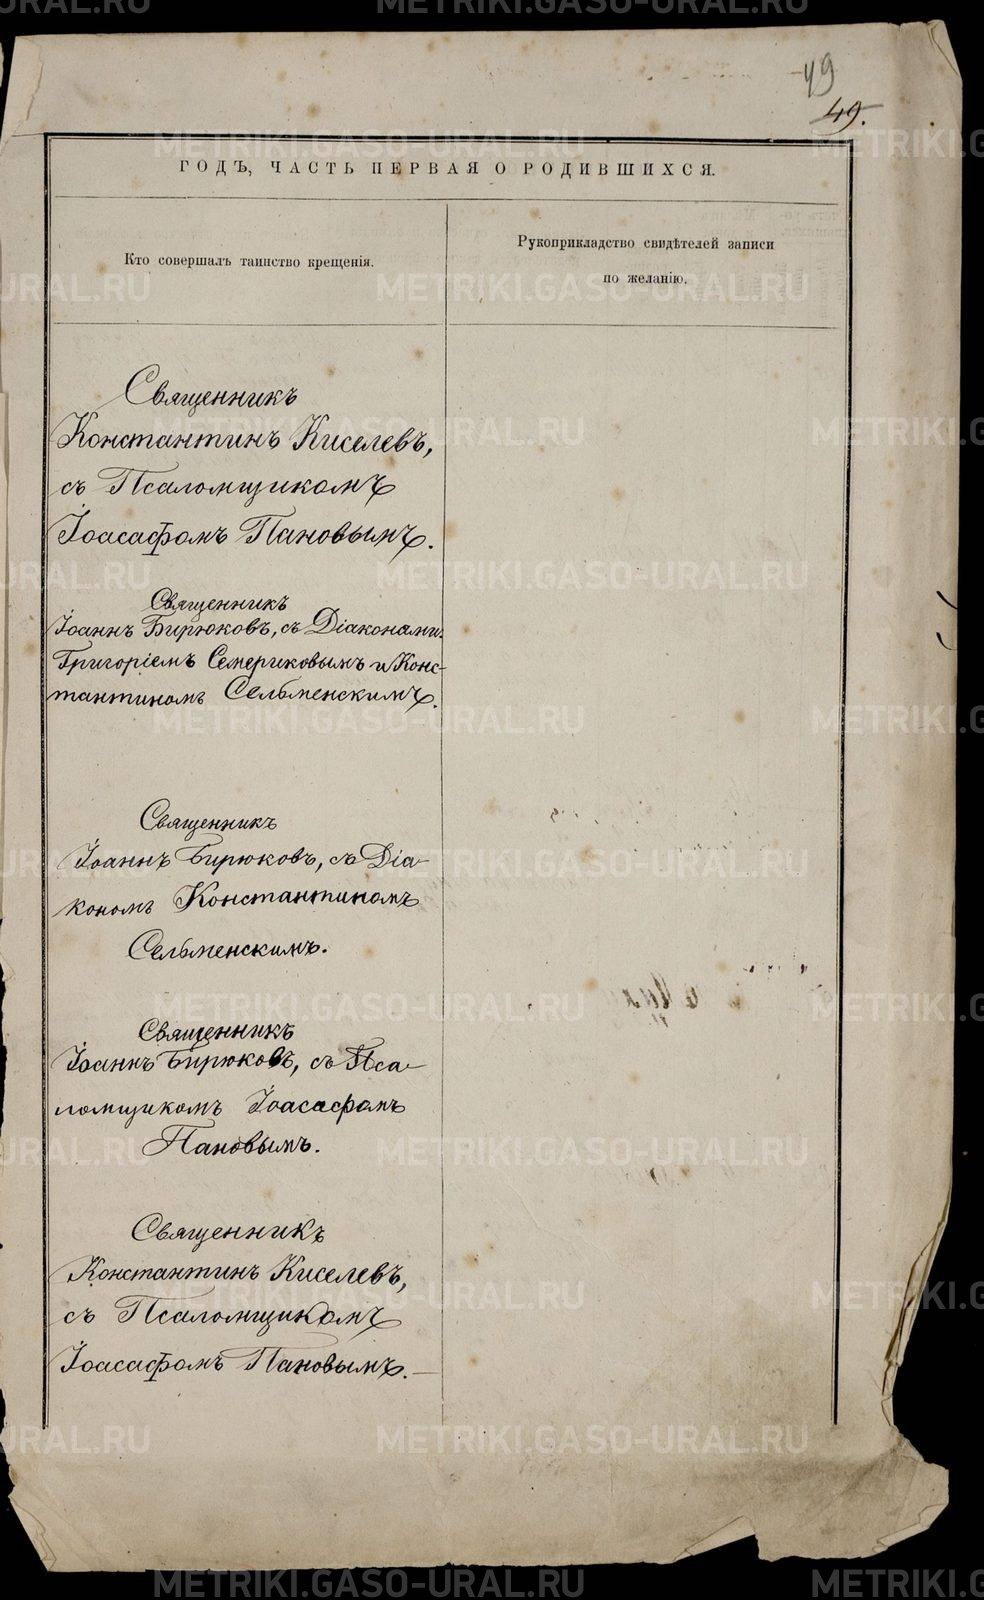 49
49.
ГОДЪ, ЧАСТЬ ПЕРВАЯ О РОДИВШИХСЯ.
Кто совершалъ таинство крещенія.
Рукоприкладство свидѣтелей записи
по желанію.
Священникъ
Константинъ Киселевъ,
съ Псаломщикомъ
Іоасафомъ Пановымъ.
Священникъ
Іоаннъ Бирюковъ, съ Діаконами:
Григоріемъ Семериковымъ и Конс-
тантиномъ Сельменскимъ.
Священникъ
Іоаннъ Бирюковъ, съ Діа-
кономъ Константиномъ
Сельменскимъ.
Священникъ
Іоаннъ Бирюковъ, съ Пса-
ломщикомъ Іоасафомъ
Пановымъ.
Священникъ
Константинъ Киселевъ,
съ Псаломщикомъ
Іоасафомъ Пановымъ.
METRIKI.GASO-URAL.RU